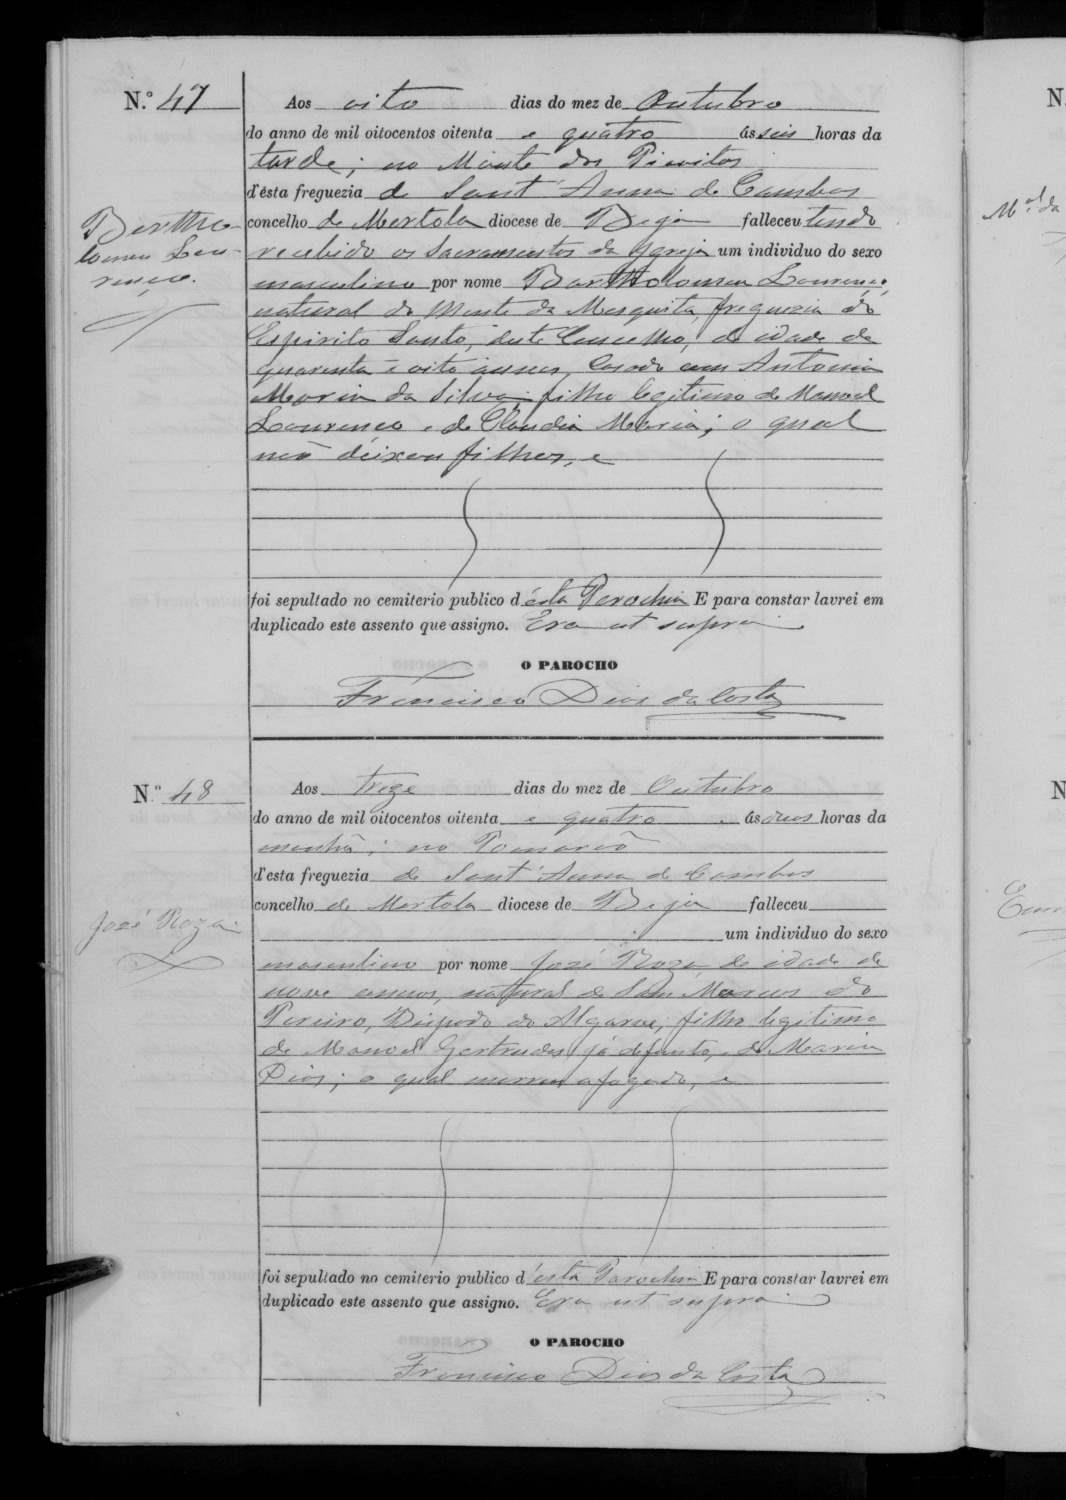 N.º 47
Aos oito dias do mez de Outubro
do anno de mil oitocentos oitenta e quatro ás seis horas da
tarde; no Monte dos
d'ésta freguezia de Sant'Anna de Cambas
concelho de Mertola diocese de Beja falleceu tendo
recebido os Sacramentos da Igreja um individuo do sexo
masculino por nome Bartholomeu Lourenço,
natural do Monte da Mesquita, freguezia do
Espirito Santo, deste Concelho, de idade de
quarenta e oito annos, casado com Antonia
Maria da Silva, filho legitimo de Manoel
Lourenço e de Claudia Maria; o qual
não deixou filhos, e
foi sepultado no cemiterio publico d'ésta Parochia E para constar lavrei em
duplicado este assento que assigno. Era ut supra
O PAROCHO
Francisco Dias da Costa
Bartho-
lomeu Lou-
renço.
N.º 48
Aos treze dias do mez de Outubro
do anno de mil oitocentos oitenta e quatro ás duas horas da
manhã; no Pomarão
d'esta freguezia de Sant'Anna de Cambas
concelho de Mertola diocese de Beja falleceu
um individuo do sexo
masculino por nome José Roza de idade de
nove annos, natural de São Marcos do
Pereiro, Bispado do Algarve, filho legitimo
de Manoel Gertrudes, já defunto, e de Maria
Dias; o qual morreu afogado, e
foi sepultado no cemiterio publico d'ésta Parochia E para constar lavrei em
duplicado este assento que assigno. Era ut supra
O PAROCHO
Francisco Dias da Costa
José Roza
N
M.el da
N